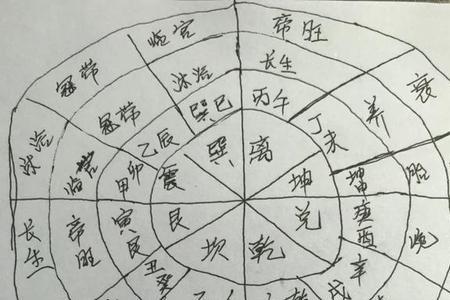 临官
帝旺
冠带
长生
沐浴
衰
冠带
巽巳
丙午
养
沐浴
乙辰
丁未
临官
甲卯
震
巽
离
坤
坤
胎
长生
帝旺
寅艮
艮
坎
乾
兑
庚酉
丑癸
辛
戌